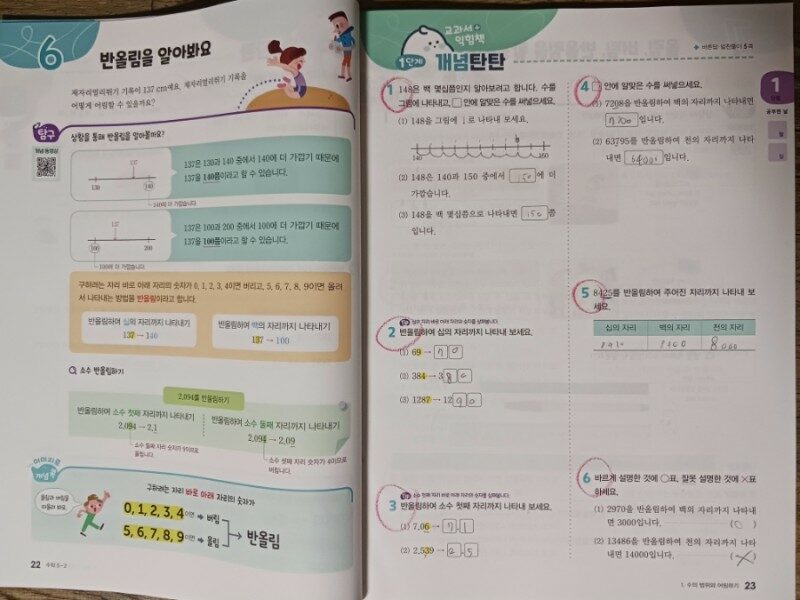 6
반올림을 알아봐요
제자리멀리뛰기 기록이 137 cm예요. 제자리멀리뛰기 기록을
어떻게 어림할 수 있을까요?
탐구
상황을 통해 반올림을 알아볼까요?
137
130
140
140에 더 가깝습니다.
137은 130과 140 중에서 140에 더 가깝기 때문에
137을 140쯤이라고 할 수 있습니다.
137
100
200
100에 더 가깝습니다.
137은 100과 200 중에서 100에 더 가깝기 때문에
137을 100쯤이라고 할 수 있습니다.
구하려는 자리 바로 아래 자리의 숫자가 0, 1, 2, 3, 4이면 버리고, 5, 6, 7, 8, 9이면 올려
서 나타내는 방법을 반올림이라고 합니다.
반올림하여 십의 자리까지 나타내기
137 → 140
반올림하여 백의 자리까지 나타내기
137 → 100
소수 반올림하기
2.094를 반올림하기
반올림하여 소수 첫째 자리까지 나타내기
2.094 → 2.1
소수 둘째 자리 숫자가 9이므로
올립니다.
반올림하여 소수 둘째 자리까지 나타내기
2.094 → 2.09
소수 셋째 자리 숫자가 4이므로
버립니다.
이미지로
개념 콕
올림과 버림을
떠올려 봐요.
구하려는 자리 바로 아래 자리의 숫자가
0, 1, 2, 3, 4이면 → 버림
5, 6, 7, 8, 9이면 → 올림
반올림
22 수학 5-2
교과서+
익힘책
1단계 개념탄탄
1 148은 백 몇십쯤인지 알아보려고 합니다. 수를
그림에 나타내고, □ 안에 알맞은 수를 써넣으세요.
(1) 148을 그림에 ↓로 나타내 보세요.
140
150
(2) 148은 140과 150 중에서 150에 더
가깝습니다.
(3) 148을 백 몇십쯤으로 나타내면 150쯤
입니다.
2 반올림하여 십의 자리까지 나타내 보세요.
(1) 69 → 70
(2) 384 → 380
(3) 1287 → 1290
소수 첫째 자리 바로 아래 자리의 숫자를 살펴봅니다.
3 반올림하여 소수 첫째 자리까지 나타내 보세요.
(1) 7.06 → 7.1
(2) 2.539 → 2.5
4 □ 안에 알맞은 수를 써넣으세요.
(1) 7208을 반올림하여 백의 자리까지 나타내면
7200입니다.
(2) 63795를 반올림하여 천의 자리까지 나타
내면 64000입니다.
5 8425를 반올림하여 주어진 자리까지 나타내 보
세요.
십의 자리 백의 자리 천의 자리
8400 8000
6 바르게 설명한 것에 ○표, 잘못 설명한 것에 ×표
하세요.
(1) 2970을 반올림하여 백의 자리까지 나타내
면 3000입니다. (○)
(2) 13486을 반올림하여 천의 자리까지 나타
내면 14000입니다. (×)
1
공부한 날
월
일
1. 수의 범위와 어림하기 23